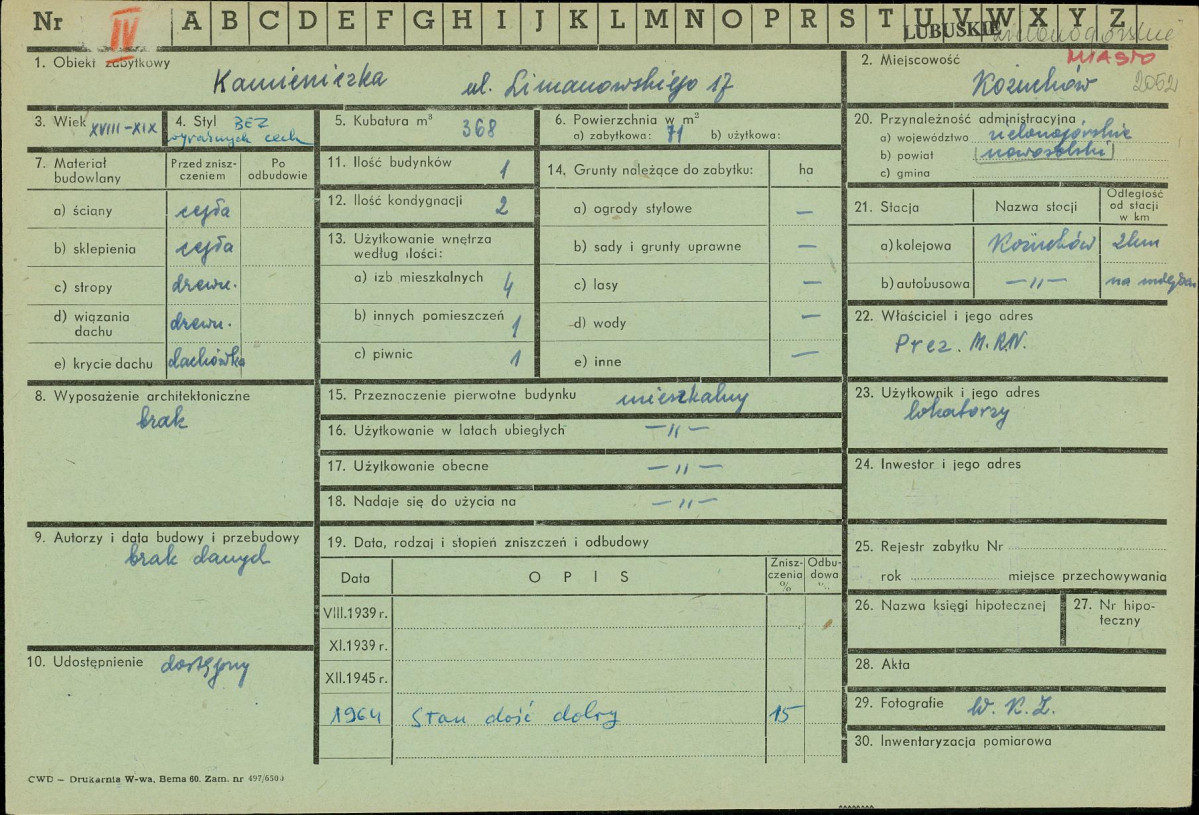 Nr IV A B C D E F G H I J K L M N O P R S T U V W X Y Z
LUBUSKIE zielonogórskie
1. Obiekt zabytkowy
Kamieniczka ul. Limanowskiego 17
2. Miejscowość MIASTO
Kożuchów 2052
3. Wiek XVIII-XIX
4. Styl BEZ
wyraźnych cech
5. Kubatura m³ 368
6. Powierzchnia w m²
a) zabytkowa: 71 b) użytkowa:
7. Materiał budowlany
Przed zniszczeniem
Po odbudowie
a) ściany cegła
b) sklepienia cegła
c) stropy drewn.
d) wiązania dachu drewn.
e) krycie dachu dachówka
8. Wyposażenie architektoniczne
brak
9. Autorzy i data budowy i przebudowy
brak danych
10. Udostępnienie dostępny
11. Ilość budynków 1
12. Ilość kondygnacji 2
13. Użytkowanie wnętrza
według ilości:
a) izb mieszkalnych 4
b) innych pomieszczeń 1
c) piwnic 1
14. Grunty należące do zabytku: ha
a) ogrody stylowe —
b) sady i grunty uprawne —
c) lasy —
d) wody —
e) inne —
15. Przeznaczenie pierwotne budynku mieszkalny
16. Użytkowanie w latach ubiegłych —"—
17. Użytkowanie obecne —"—
18. Nadaje się do użycia na —"—
19. Data, rodzaj i stopień zniszczeń i odbudowy
Data OPIS Zniszczenia % Odbudowa %
VIII.1939 r.
XI.1939 r.
XII.1945 r.
1964 Stan dość dobry 15
20. Przynależność administracyjna
a) województwo zielonogórskie
b) powiat nowosolski
c) gmina
21. Stacja Nazwa stacji Odległość od stacji w km
a) kolejowa Kożuchów 2km
b) autobusowa —"— na miejscu
22. Właściciel i jego adres
Prez. M.R.N.
23. Użytkownik i jego adres
lokatorzy
24. Inwestor i jego adres
25. Rejestr zabytku Nr
rok miejsce przechowywania
26. Nazwa księgi hipotecznej
27. Nr hipoteczny
28. Akta
29. Fotografie W. K. Z.
30. Inwentaryzacja pomiarowa
CWD – Drukarnia W-wa, Bema 60. Zam. nr 497/6500